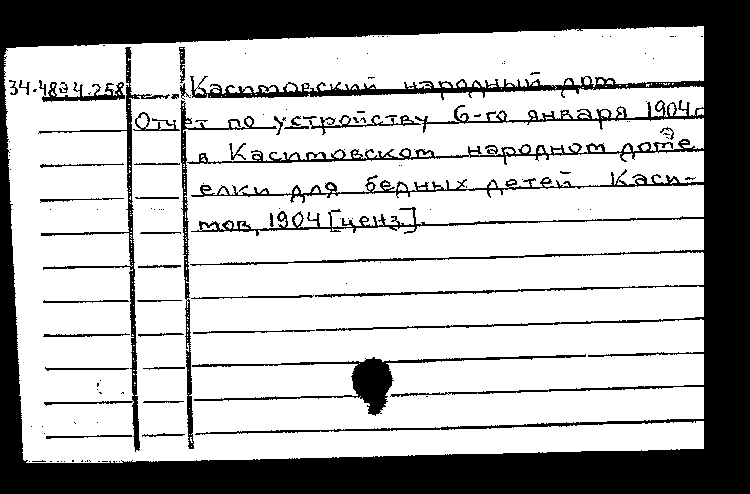 34-48 а 4.258 Касимовский народный дом
Отчет по устройству 6-го января 1904 г
в Касимовском народном доме
елки для бедных детей. Каси-
мов, 1904 [ценз.].